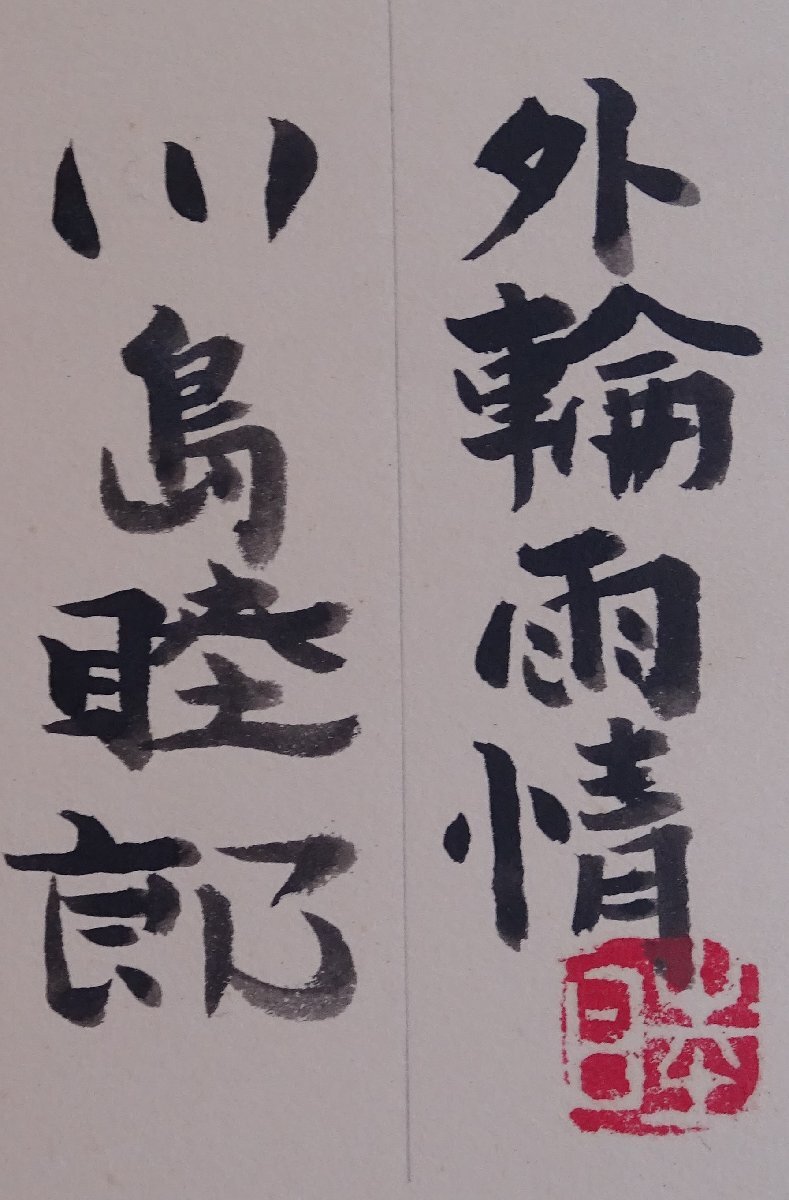 外輪雨情
川島睦郎
睦